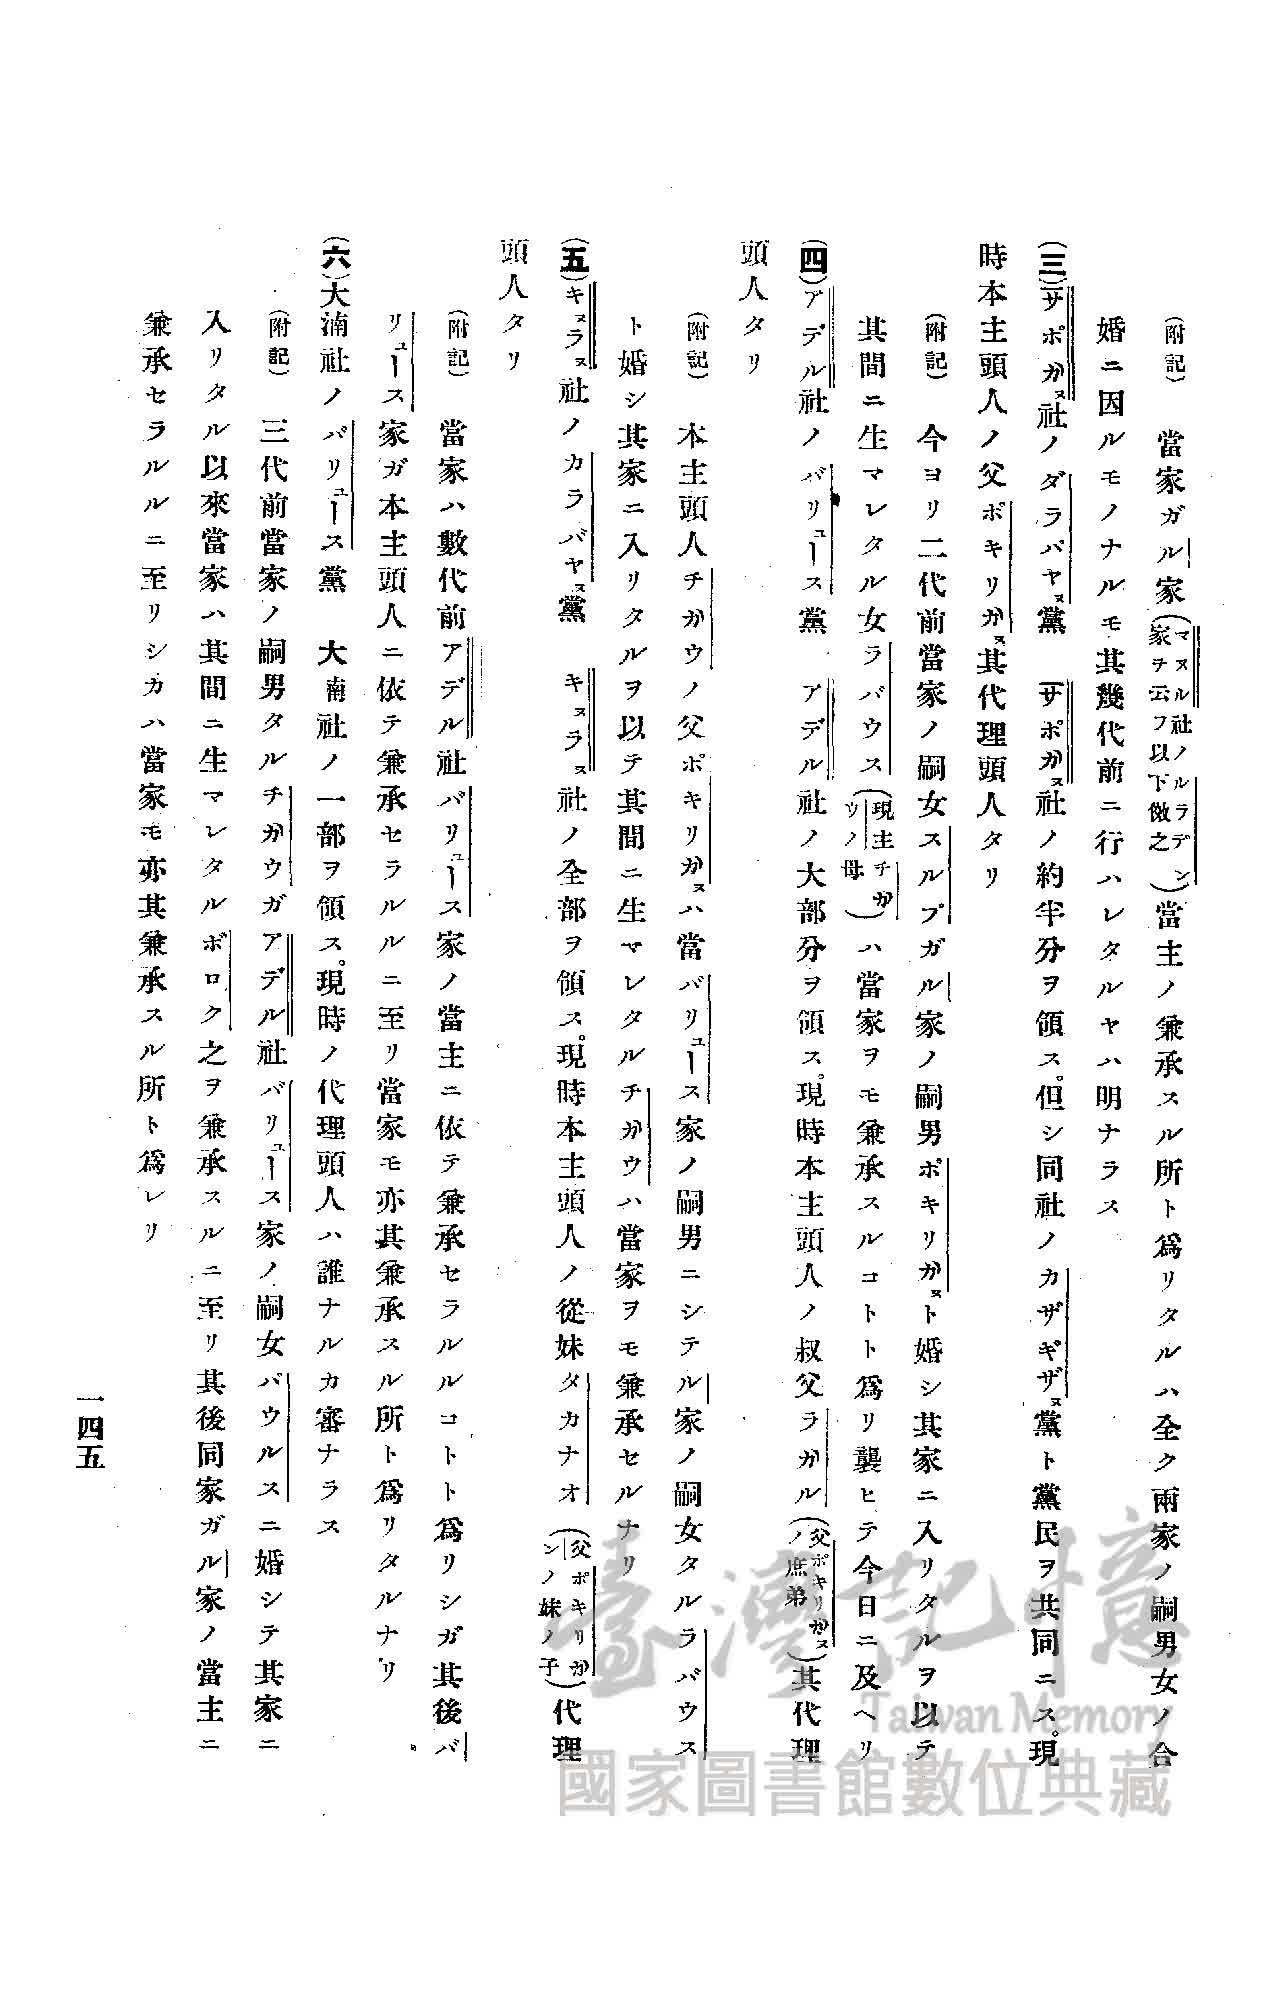 (附記) 當家ガル家(マヌル社ノルラデン家ヲ云フ以下傚之)當主ノ兼承スル所ト爲リタルハ全ク兩家ノ嗣男女ノ合
婚ニ因ルモノナルモ其幾代前ニ行ハレタルヤハ明ナラス
(三)サポガヌ社ノダラパヤヌ黨 サポガヌ社ノ約半分ヲ領ス。但シ同社ノカザギザヌ黨ト黨民ヲ共同ニス。現
時本主頭人ノ父ポキリガヌ其代理頭人タリ
(附記) 今ヨリ二代前當家ノ嗣女スルプガル家ノ嗣男ポキリガヌト婚シ其家ニ入リタルヲ以テ
其間ニ生マレタル女ラバウス(現主チガウノ母)ハ當家ヲモ兼承スルコトト爲リ襲ヒテ今日ニ及ヘリ
(四)アデル社ノバリュース黨 アデル社ノ大部分ヲ領ス。現時本主頭人ノ叔父ラガル(父ポキリガヌノ庶弟)其代理
頭人タリ
(附記) 本主頭人チガウノ父ポキリガヌハ當バリュース家ノ嗣男ニシテル家ノ嗣女タルラバウス
ト婚シ其家ニ入リタルヲ以テ其間ニ生マレタルチガウハ當家ヲモ兼承セルナリ
(五)キヌラヌ社ノカラバヤヌ黨 キヌラヌ社ノ全部ヲ領ス。現時本主頭人ノ從妹タカナオ(父ポキリガンノ妹ノ子)代理
頭人タリ
(附記) 當家ハ數代前アデル社バリュース家ノ當主ニ依テ兼承セラルルコトト爲リシガ其後バ
リュース家ガ本主頭人ニ依テ兼承セラルルニ至リ當家モ亦其兼承スル所ト爲リタルナリ
(六)大湳社ノバリュース黨 大南社ノ一部ヲ領ス。現時ノ代理頭人ハ誰ナルカ審ナラス
(附記) 三代前當家ノ嗣男タルチガウガアデル社バリュース家ノ嗣女バウルスニ婚シテ其家ニ
入リタル以來當家ハ其間ニ生マレタルボロク之ヲ兼承スルニ至リ其後同家ガル家ノ當主ニ
兼承セラルルニ至リシカハ當家モ亦其兼承スル所ト爲レリ
一四五
臺灣記憶
Taiwan Memory
國家圖書館數位典藏